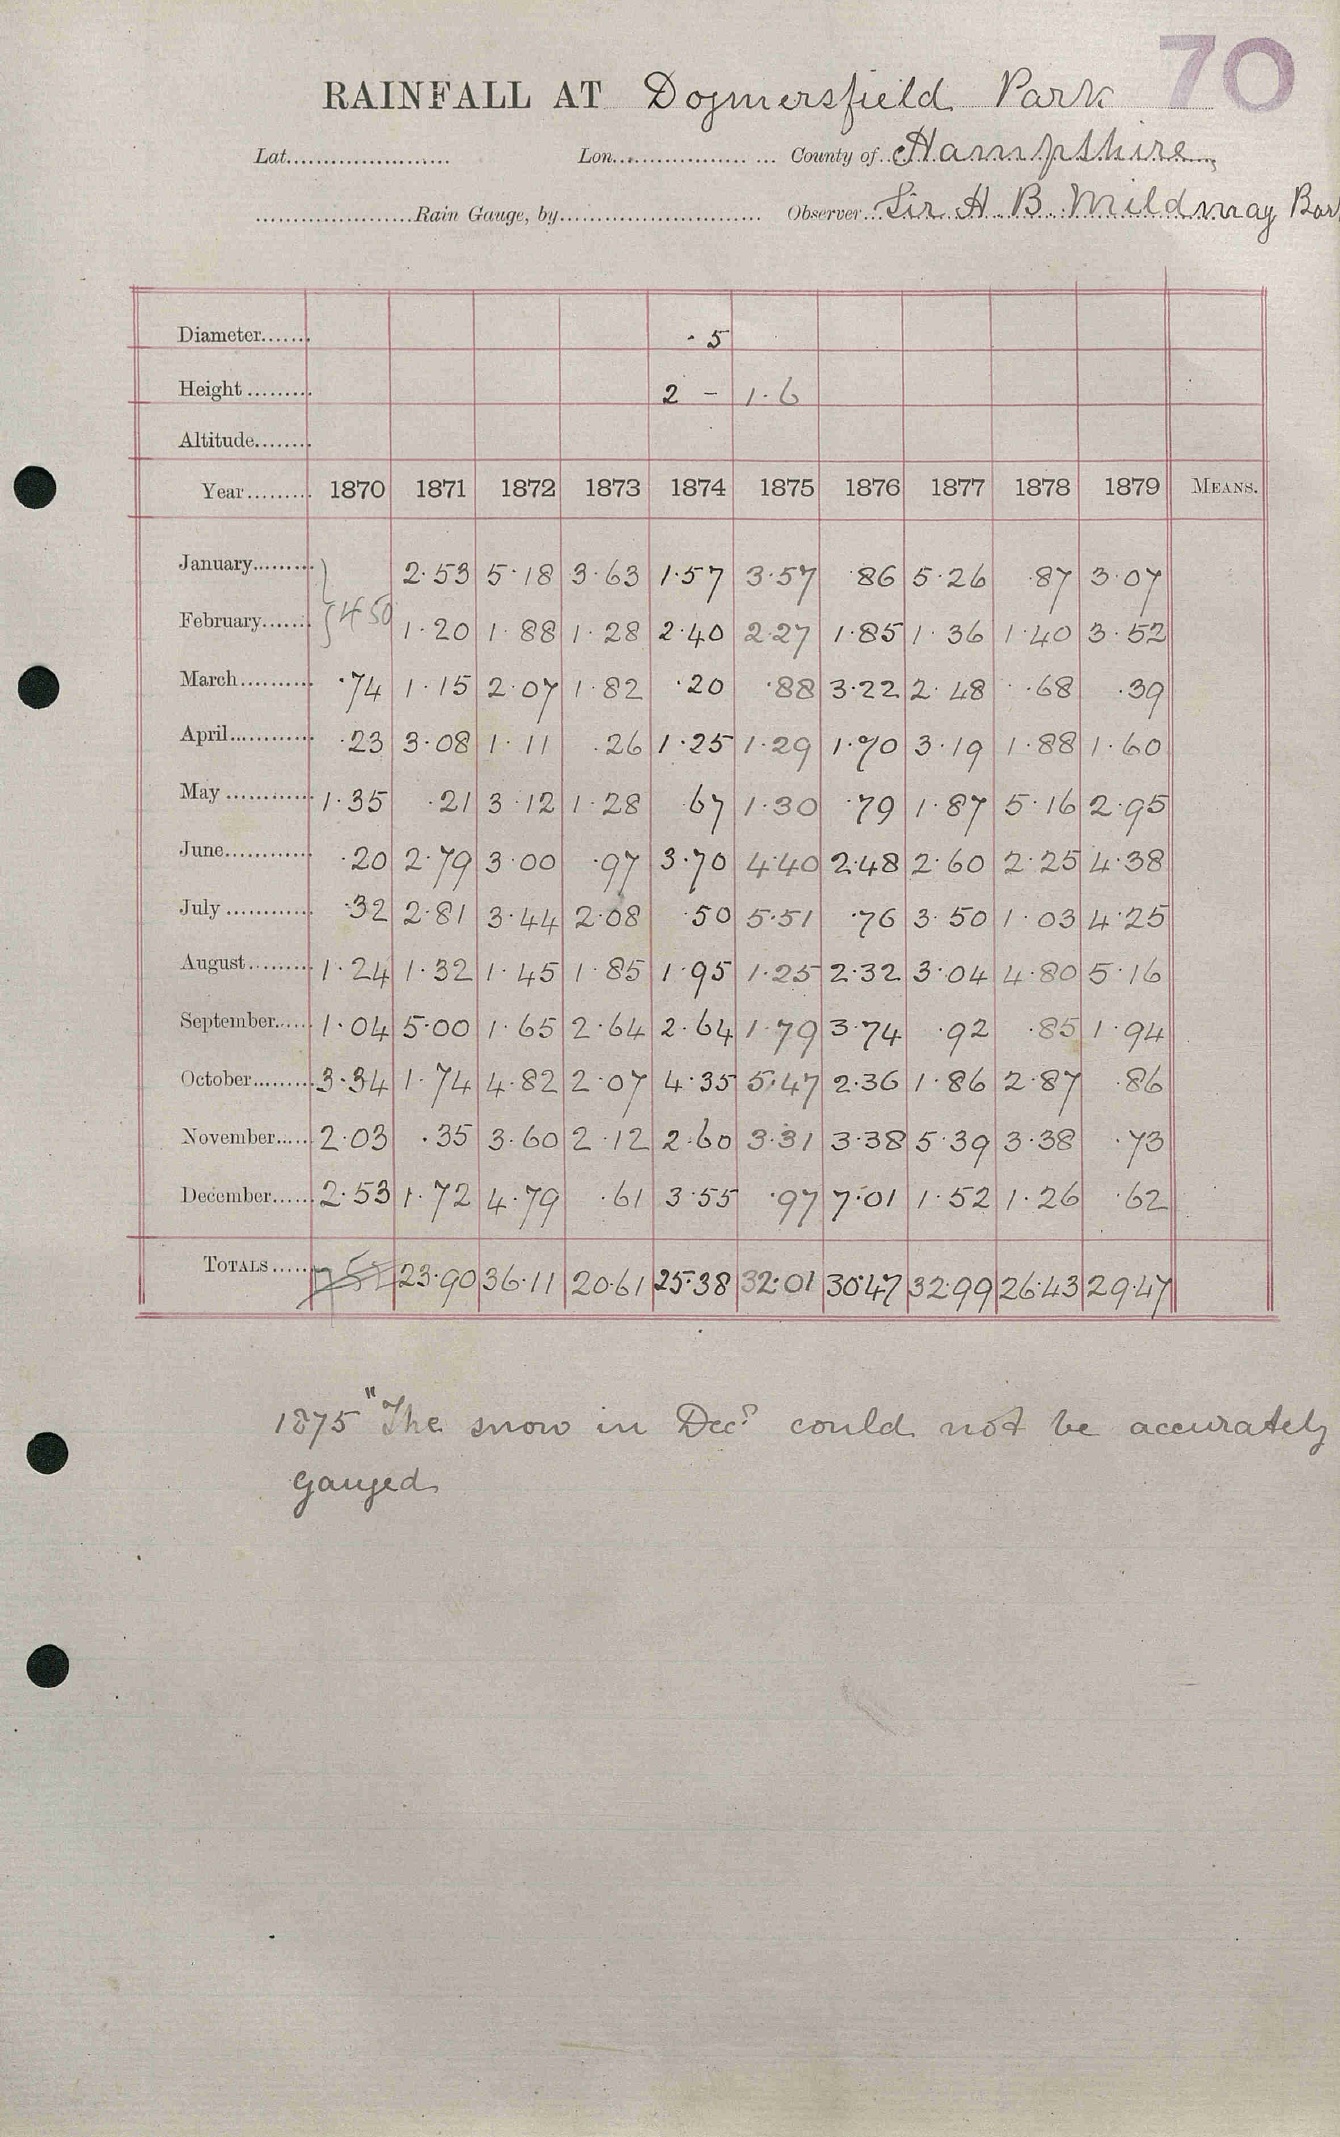 70
RAINFALL AT Dogmersfield Park
Lat. Lon. County of Hampshire
Rain Gauge, by Observer Sir H B Mildmay Bart
Diameter ·5
Height 2 – 1·6
Altitude
Year 1870 1871 1872 1873 1874 1875 1876 1877 1878 1879 MEANS.
January 2·53 5·18 3·63 1·57 3·57 ·86 5·26 ·87 3·07
} 4 50
February 1·20 1·88 1·28 2·40 2·27 1·85 1·36 1·40 3·52
March ·74 1·15 2·07 1·82 ·20 ·88 3·22 2·48 ·68 ·39
April ·23 3·08 1·11 ·26 1·25 1·29 1·70 3·19 1·88 1·60
May 1·35 ·21 3·12 1·28 ·67 1·30 ·79 1·87 5·16 2·95
June ·20 2·79 3·00 ·97 3·70 4·40 2·48 2·60 2·25 4·38
July ·32 2·81 3·44 2·08 ·50 5·51 ·76 3·50 1·03 4·25
August 1·24 1·32 1·45 1·85 1·95 1·25 2·32 3·04 4·80 5·16
September 1·04 5·00 1·65 2·64 2·64 1·79 3·74 ·92 ·85 1·94
October 3·34 1·74 4·82 2·07 4·35 5·47 2·36 1·86 2·87 ·86
November 2·03 ·35 3·60 2·12 2·60 3·31 3·38 5·39 3·38 ·73
December 2·53 1·72 4·79 ·61 3·55 ·97 7·01 1·52 1·26 ·62
TOTALS 23·90 36·11 20·61 25·38 32·01 30·47 32·99 26·43 29·47
1875 "The snow in Decr could not be accurately
gauged